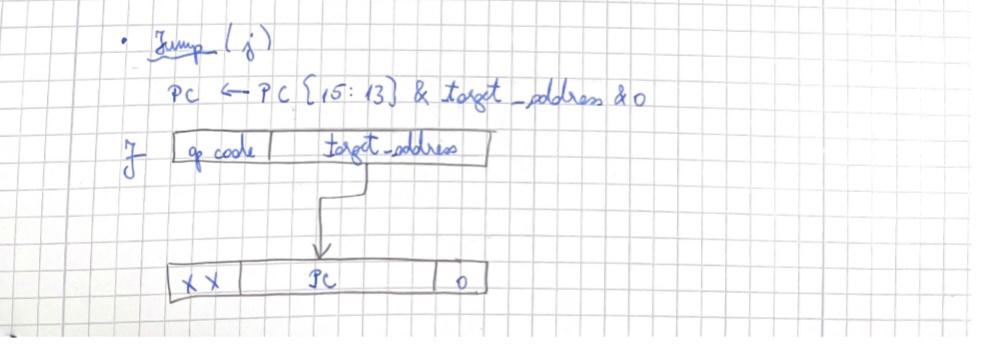 • Jump (j)
PC ← PC [15:13] & target_address & 0
J op code target_address
X X PC 0